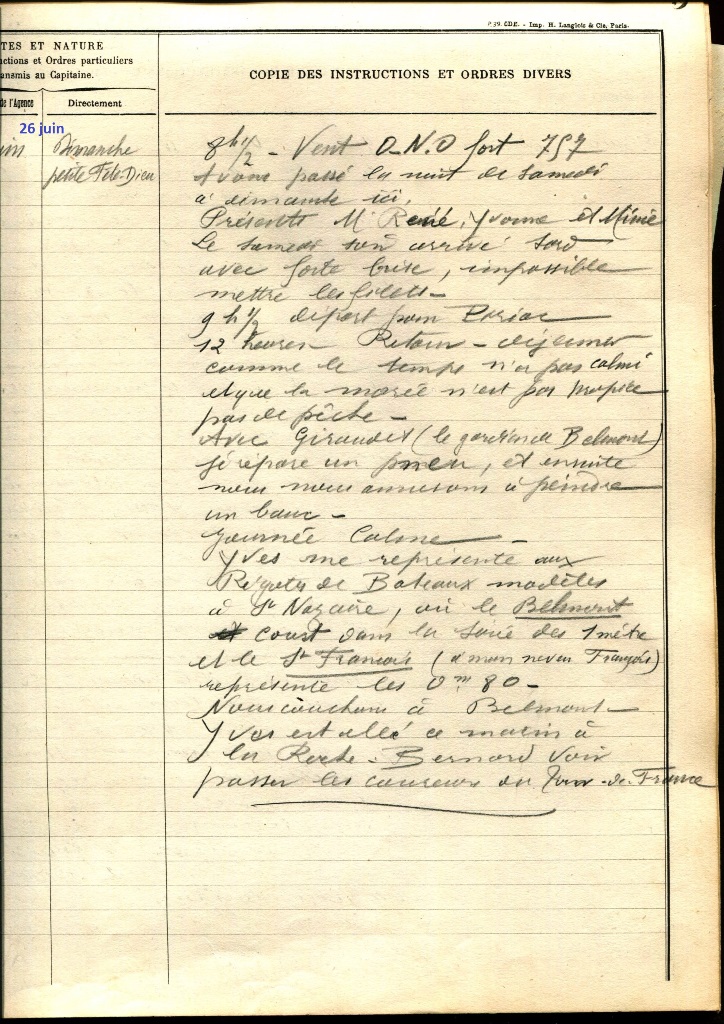 P 39. CDE. - Imp. H. Langlois & Cie, Paris.
TES ET NATURE
uctions et Ordres particuliers
ansmis au Capitaine.
COPIE DES INSTRUCTIONS ET ORDRES DIVERS
de l'Agence
Directement
26 juin
in
Dimanche
petite Fête-Dieu
8h 1/2 - Vent O-N.O fort 757
Avons passé la nuit de samedi
à dimanche ici.
Présents Mr René, Yvonne et Mimie
Le samedi soir arrivé
avec forte brise, impossible
mettre les filets -
9 h 1/2 départ pour
12 heures Retour - déjeuner
comme le temps n'a pas calmi
et que la marée n'est pas propice
pas de pêche -
Avec Giraudet (le gardien de Belmont)
je répare un pneu, et ensuite
nous nous amusons à peindre
un banc -
Journée Calme -
Yves me représente aux
Régates de Bateaux modèles
à St Nazaire, où le Belmont
court dans la série des 1 mètre
et le St François (à mon neveu François)
représente les 0m 80 -
Nous couchons à Belmont -
Yves est allé ce matin à
la Roche-Bernard voir
passer les coureurs du Tour-de-France